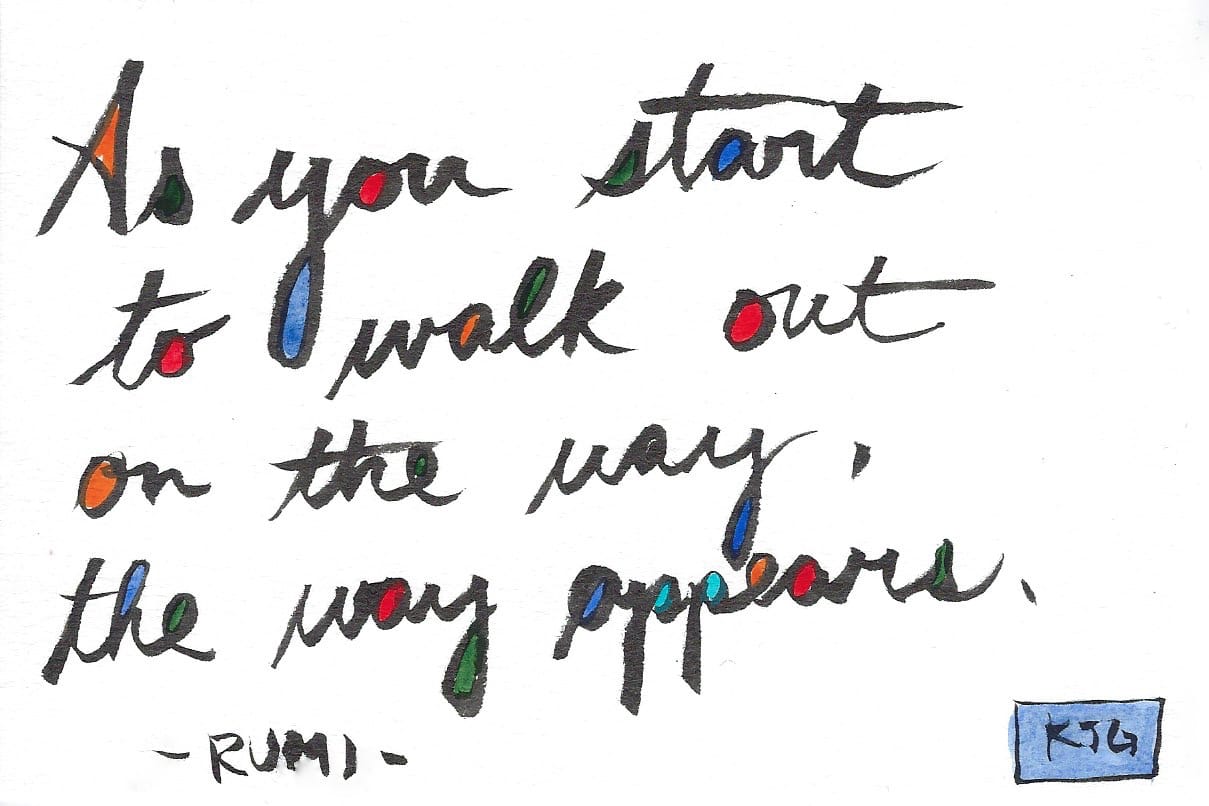 As you start
to walk out
on the way,
the way appears.
-RUMI-
KJG